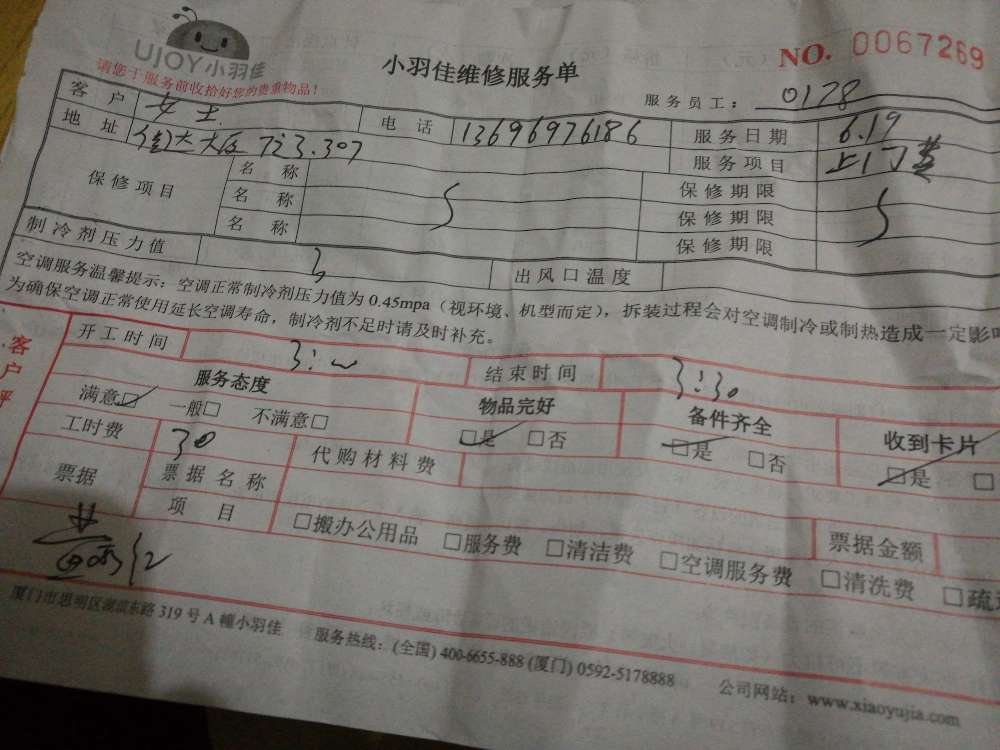 UJOY小羽佳
小羽佳维修服务单
NO. 0067269
请您于服务前收拾好您的贵重物品!
服务员工: 0178
客户 女士 电话 13696976186 服务日期 6.19
地址 大厦 723.307 服务项目 上门
保修项目 名称 保修期限
名称 保修期限
名称 保修期限
制冷剂压力值 出风口温度
空调服务温馨提示:空调正常制冷剂压力值为 0.45mpa(视环境、机型而定),拆装过程会对空调制冷或制热造成一定影响
为确保空调正常使用延长空调寿命,制冷剂不足时请及时补充。
客户评
开工时间 3: 结束时间 3:30
服务态度 物品完好 备件齐全 收到卡片
满意☑ 一般□ 不满意□ ☑是 □否 ☑是 □否 ☑是 □
工时费 30 代购材料费
票据 票据名称
项目 □搬办公用品 □服务费 □清洁费 □空调服务费 □清洗费 □疏
票据金额
厦门市思明区湖滨东路 319 号 A 幢小羽佳 服务热线:(全国) 400-6655-888 (厦门) 0592-5178888 公司网站:www.xiaoyujia.com